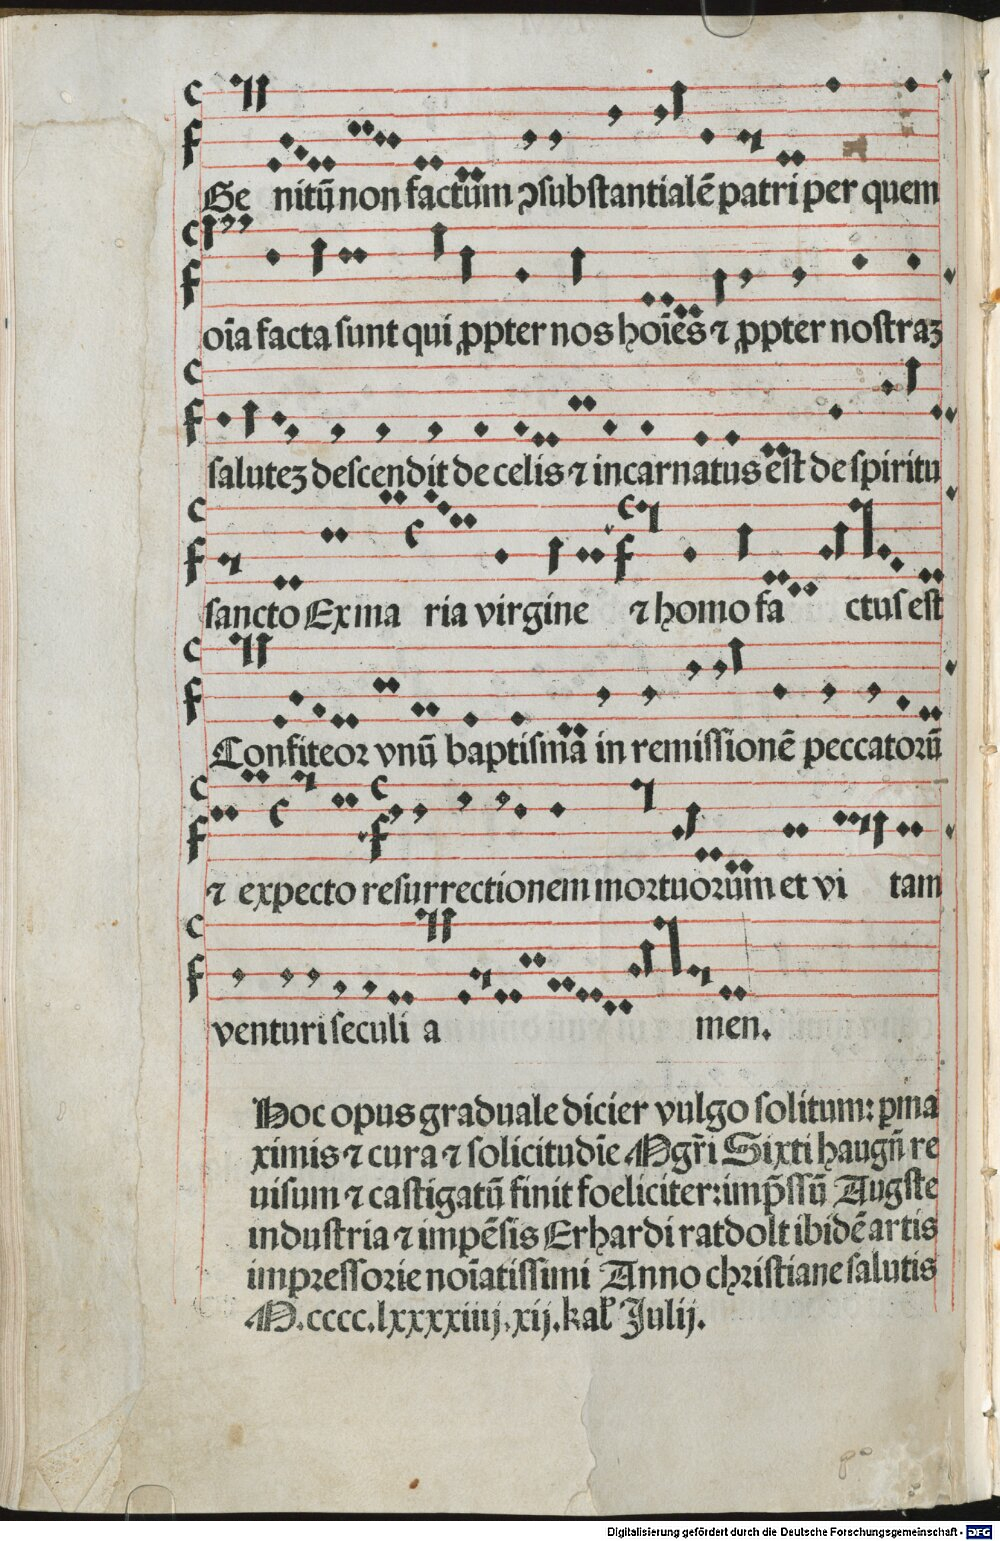 Ge nitū non factum ↄsubstantialē patri per quem
oīa facta sunt qui ꝓpter nos hoīes ⁊ ꝓpter nostraꝫ
saluteꝫ descendit de celis ⁊ incarnatus est de spiritu
sancto Ex ma ria virgine ⁊ homo fa ctus est
Confiteor vnū baptisma in remissionē peccatorū
⁊ expecto resurrectionem mortuorum et vi tam
venturi seculi a men.
Hoc opus graduale dicier vulgo solitum: ꝑ ma
ximis ⁊ cura ⁊ solicitudīe Mgr̄i Sixti haugn̄ re
uisum ⁊ castigatū finit foeliciter: imp̄ssū Augste
industria ⁊ impēsis Erhardi ratdolt ibidē artis
impressorie noīatissimi Anno christiane salutis
M.cccc.lxxxxiiij.xij.kal' Julij.
Digitalisierung gefördert durch die Deutsche Forschungsgemeinschaft - DFG